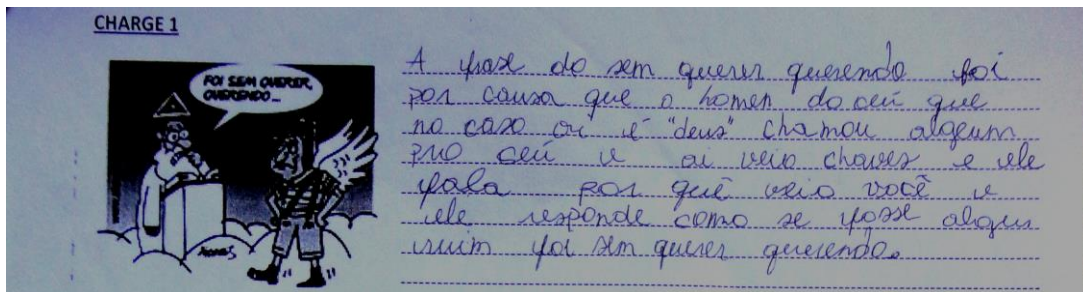 CHARGE 1
FOI SEM QUERER,
QUERENDO...
A frase do sem querer querendo foi
por causa que o homen do ceú que
no caso ai é "deus" chamou algeum
pro ceú e ai veio chaves e ele
fala por quê veio você e
ele responde como se fosse algus
ruim foi sem querer querendo.